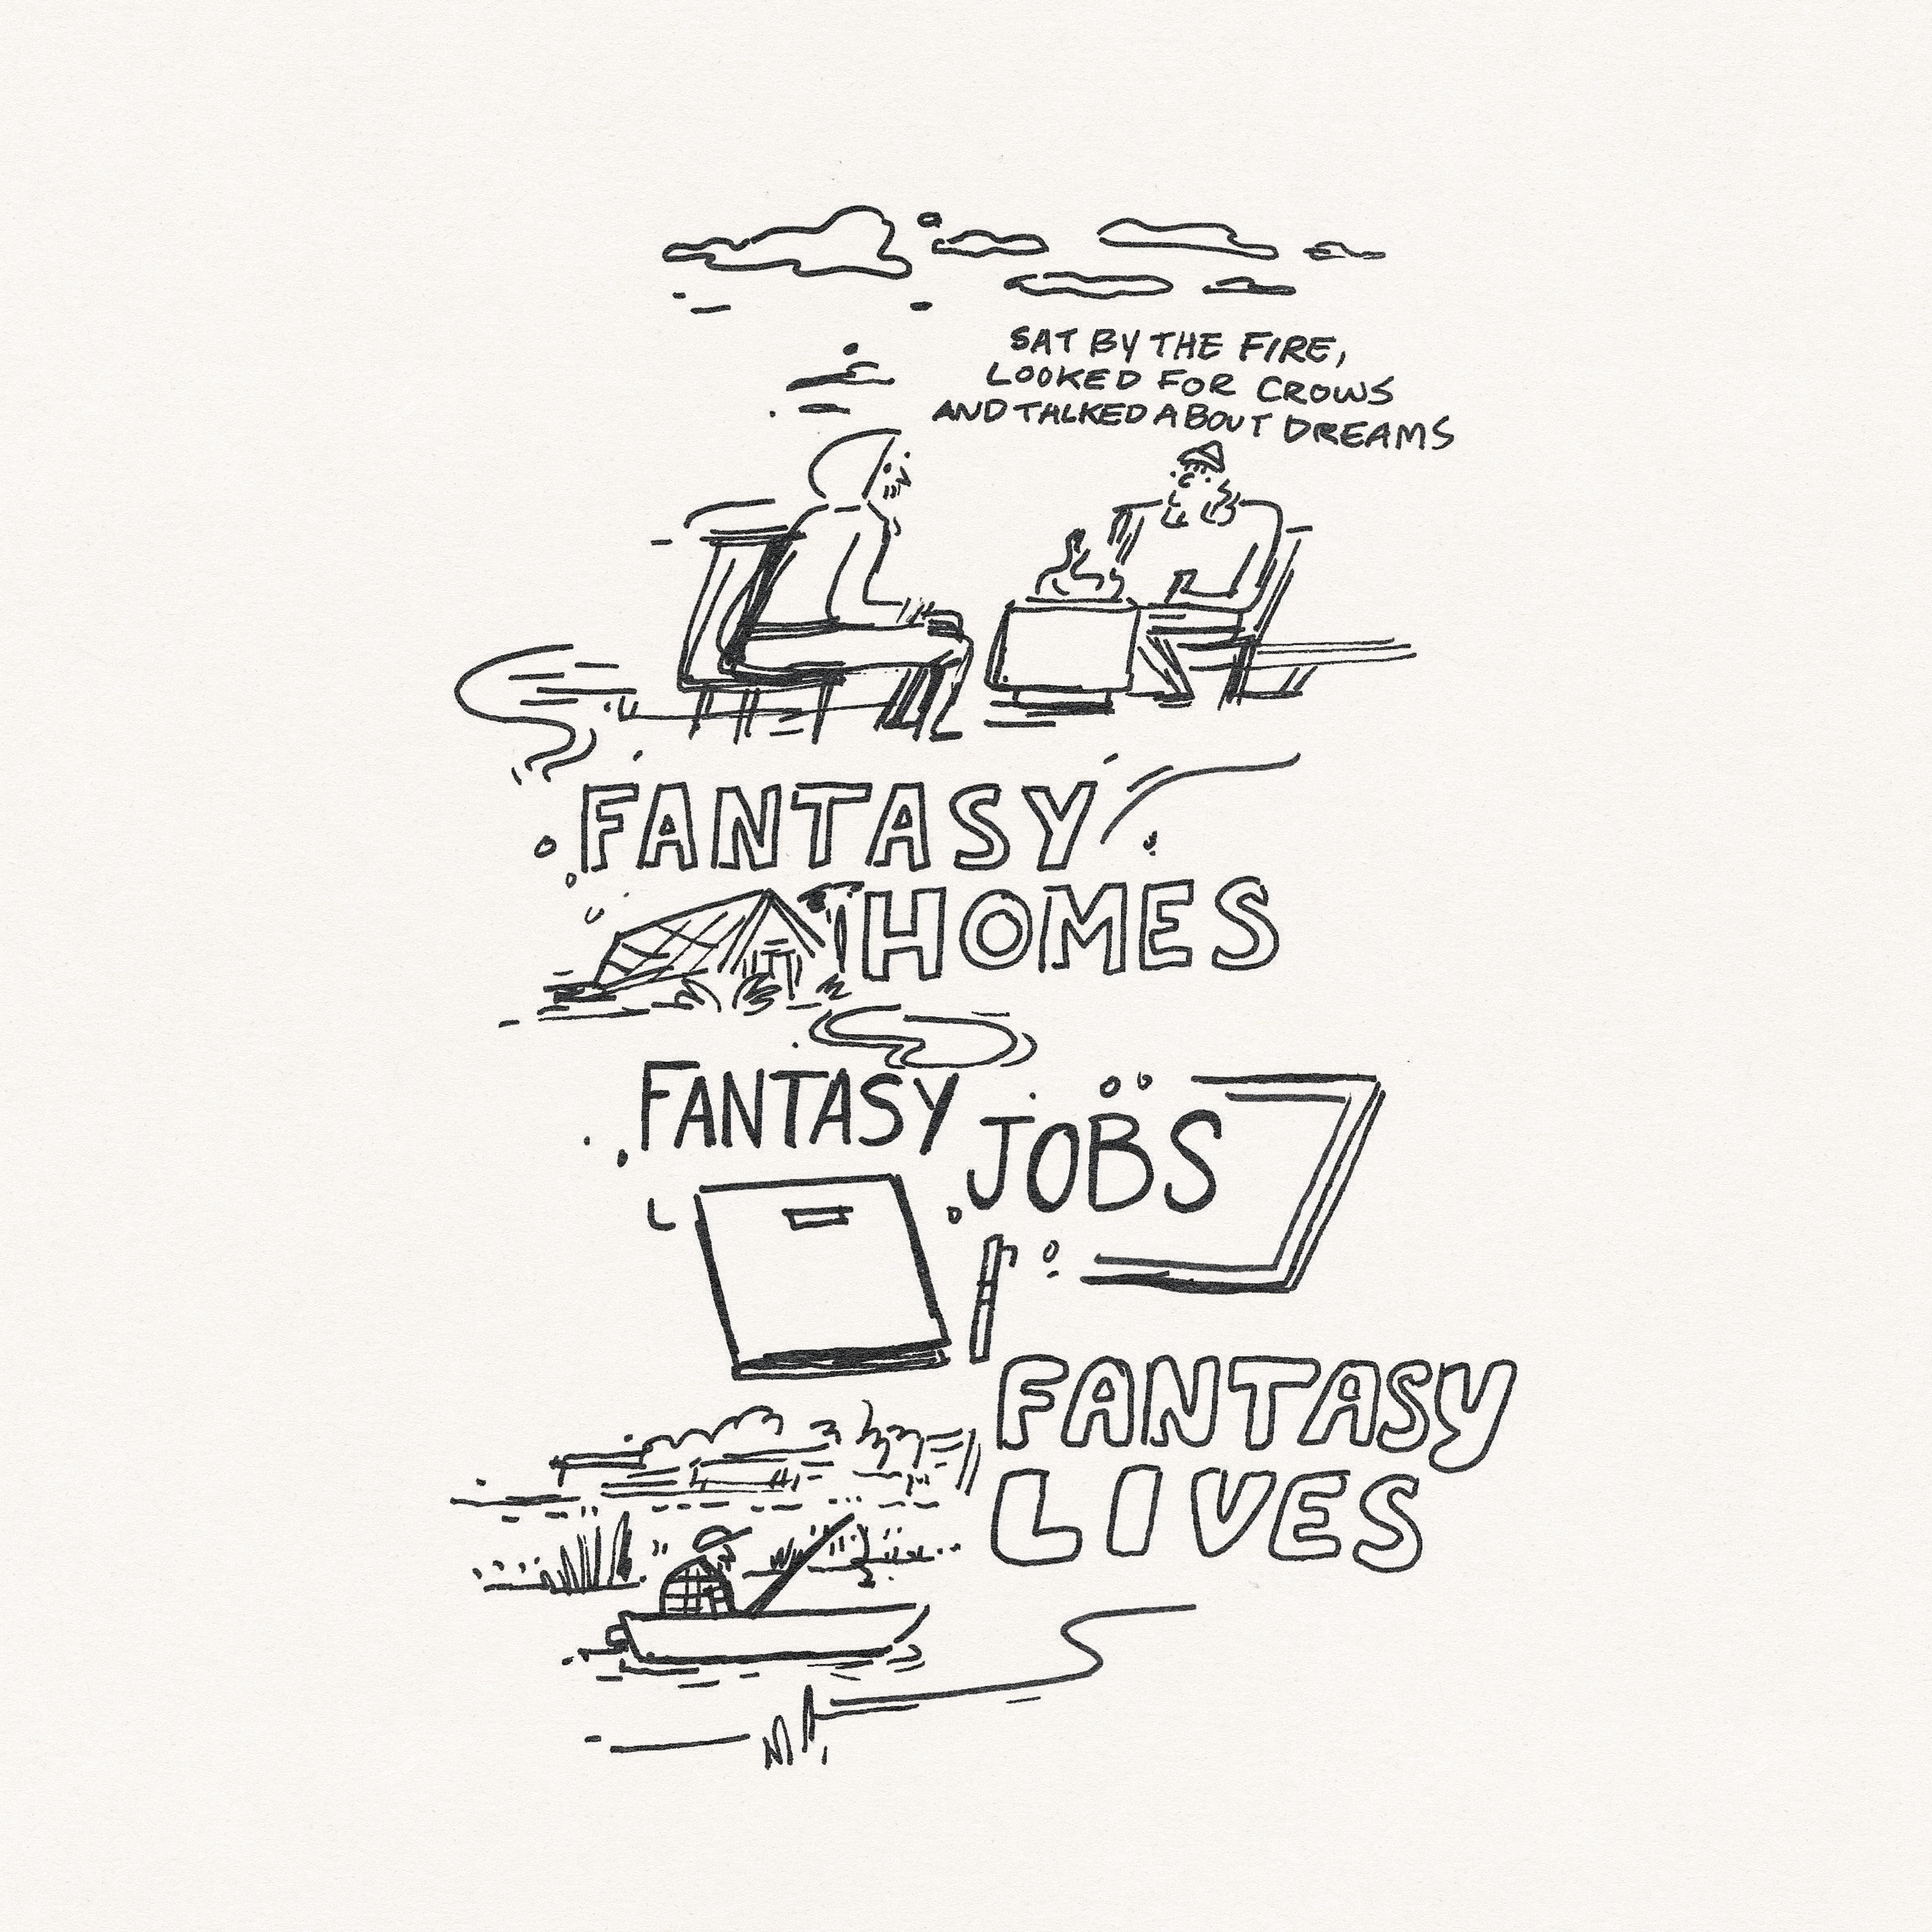 SAT BY THE FIRE,
LOOKED FOR CROWS
AND TALKED ABOUT DREAMS
FANTASY
HOMES
FANTASY
JOBS
FANTASY
LIVES